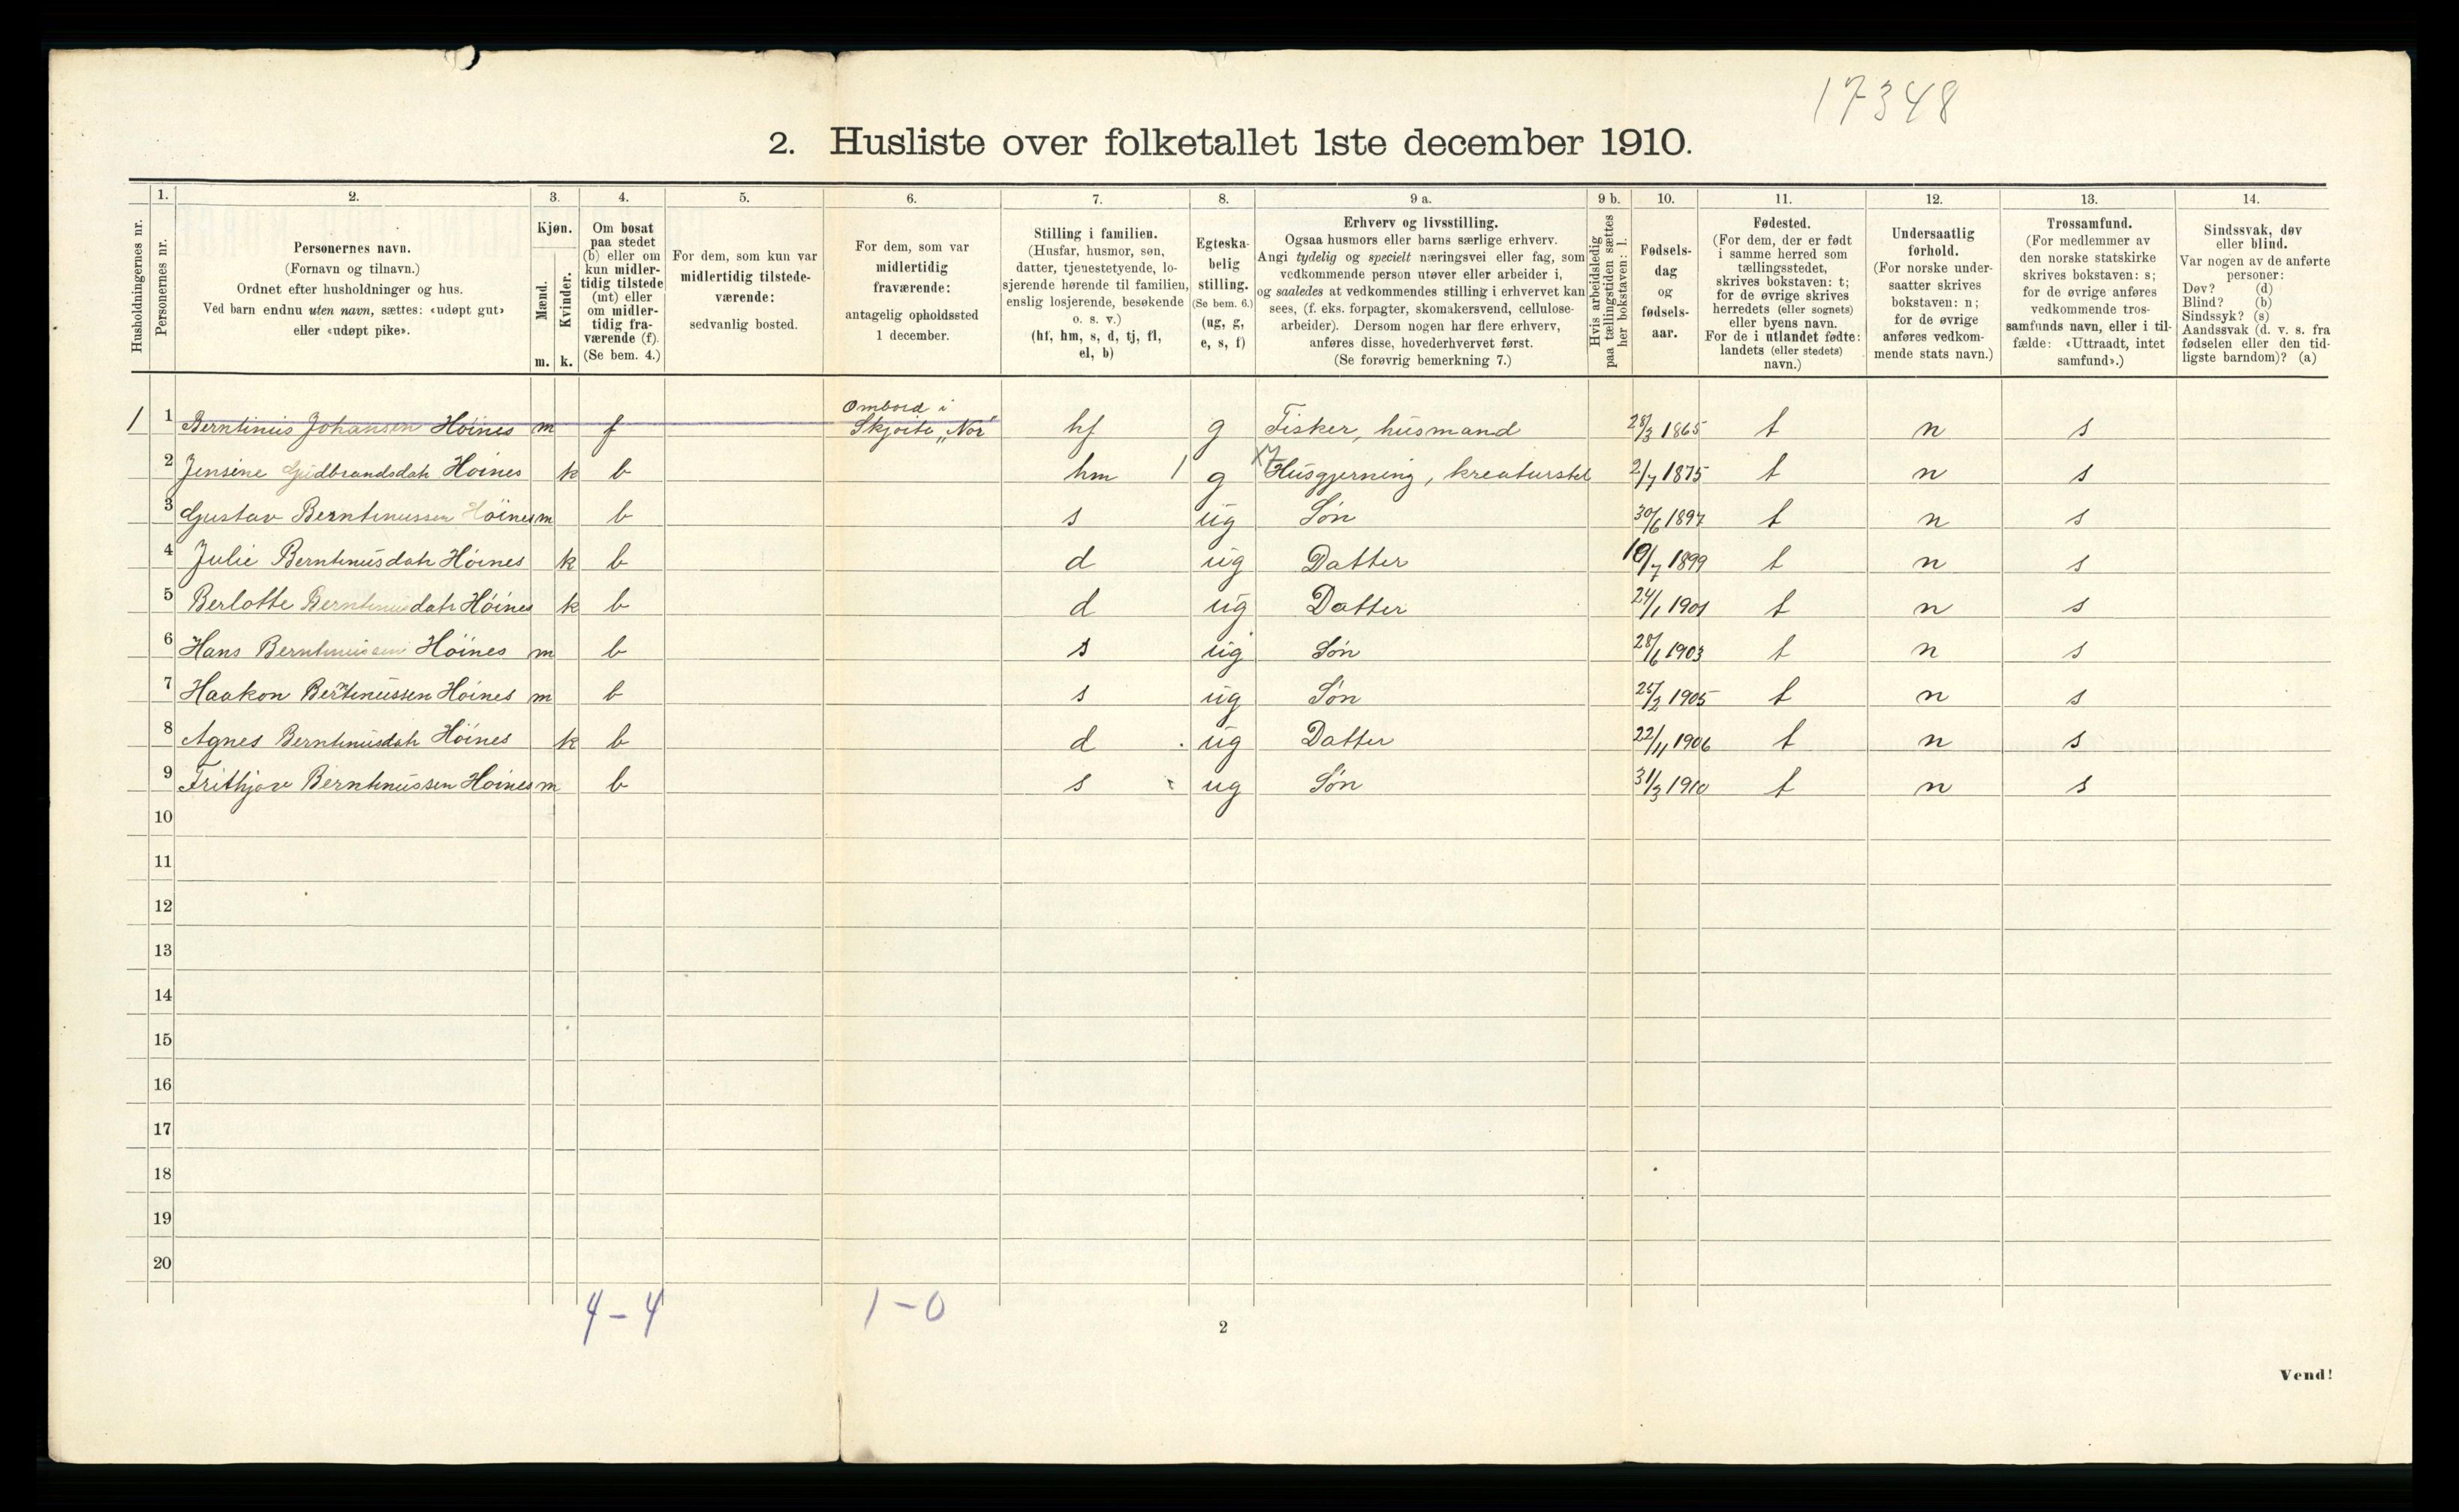 17348
2. Husliste over folketallet 1ste december 1910.
Husholdningernes nr.
1.
Personernes nr.
2.
Personernes navn.
(Fornavn og tilnavn.)
Ordnet efter husholdninger og hus.
Ved barn endnu uten navn, sættes: «udøpt gut»
eller «udøpt pike».
3.
Kjøn.
Mænd.
m.
Kvinder.
k.
4.
Om bosat
paa stedet
(b) eller om
kun midler-
tidig tilstede
(mt) eller
om midler-
tidig fra-
værende (f).
(Se bem. 4.)
5.
For dem, som kun var
midlertidig tilstede-
værende:
sedvanlig bosted.
6.
For dem, som var
midlertidig
fraværende:
antagelig opholdssted
1 december.
7.
Stilling i familien.
(Husfar, husmor, søn,
datter, tjenestetyende, lo-
sjerende hørende til familien,
enslig losjerende, besøkende
o. s. v.)
(hf, hm, s, d, tj, fl,
el, b)
8.
Egteska-
belig
stilling.
(Se bem. 6.)
(ug, g,
e, s, f)
9 a.
Erhverv og livsstilling.
Ogsaa husmors eller barns særlige erhverv.
Angi tydelig og specielt næringsvei eller fag, som
vedkommende person utøver eller arbeider i,
og saaledes at vedkommendes stilling i erhvervet kan
sees, (f. eks. forpagter, skomakersvend, cellulose-
arbeider). Dersom nogen har flere erhverv,
anføres disse, hovederhvervet først.
(Se forøvrig bemerkning 7.)
9 b.
Hvis arbeidsledig
paa tællingstiden sættes
her bokstaven: l.
10.
Fødsels-
dag
og
fødsels-
aar.
11.
Fødested.
(For dem, der er født
i samme herred som
tællingsstedet,
skrives bokstaven: t;
for de øvrige skrives
herredets (eller sognets)
eller byens navn.
For de i utlandet fødte:
landets (eller stedets)
navn.)
12.
Undersaatlig
forhold.
(For norske under-
saatter skrives
bokstaven: n;
for de øvrige
anføres vedkom-
mende stats navn.)
13.
Trossamfund.
(For medlemmer av
den norske statskirke
skrives bokstaven: s;
for de øvrige anføres
vedkommende tros-
samfunds navn, eller i til-
fælde: «Uttraadt, intet
samfund».)
14.
Sindssvak, døv
eller blind.
Var nogen av de anførte
personer:
Døv? (d)
Blind? (b)
Sindssyk? (s)
Aandssvak (d. v. s. fra
fødselen eller den tid-
ligste barndom)? (a)
1 1 Berntinius Johansen Höines m f Ombord i Skjoite "Nor" hf g Fisker, husmand 28/3 1865 t n s
2 Jensine Gudbrandsdatr Höines k b hm 1 g Husgjerning, kreaturstel 2/7 1875 t n s
3 Gustav Berntinussen Höines m b s ug Søn 30/6 1897 t n s
4 Julie Berntinusdatr Höines k b d ug Datter 10/7 1899 t n s
5 Berlotte Berntinusdatr Höines k b d ug Datter 24/1 1901 t n s
6 Hans Berntinussen Höines m b s ug Søn 28/6 1903 t n s
7 Haakon Berntinussen Höines m b s ug Søn 25/2 1905 t n s
8 Agnes Berntinusdatr Höines k b d ug Datter 22/11 1906 t n s
9 Frithjov Berntinussen Höines m b s ug Søn 31/3 1910 t n s
10
11
12
13
14
15
16
17
18
19
20
4-4 1-0
2
Vend!